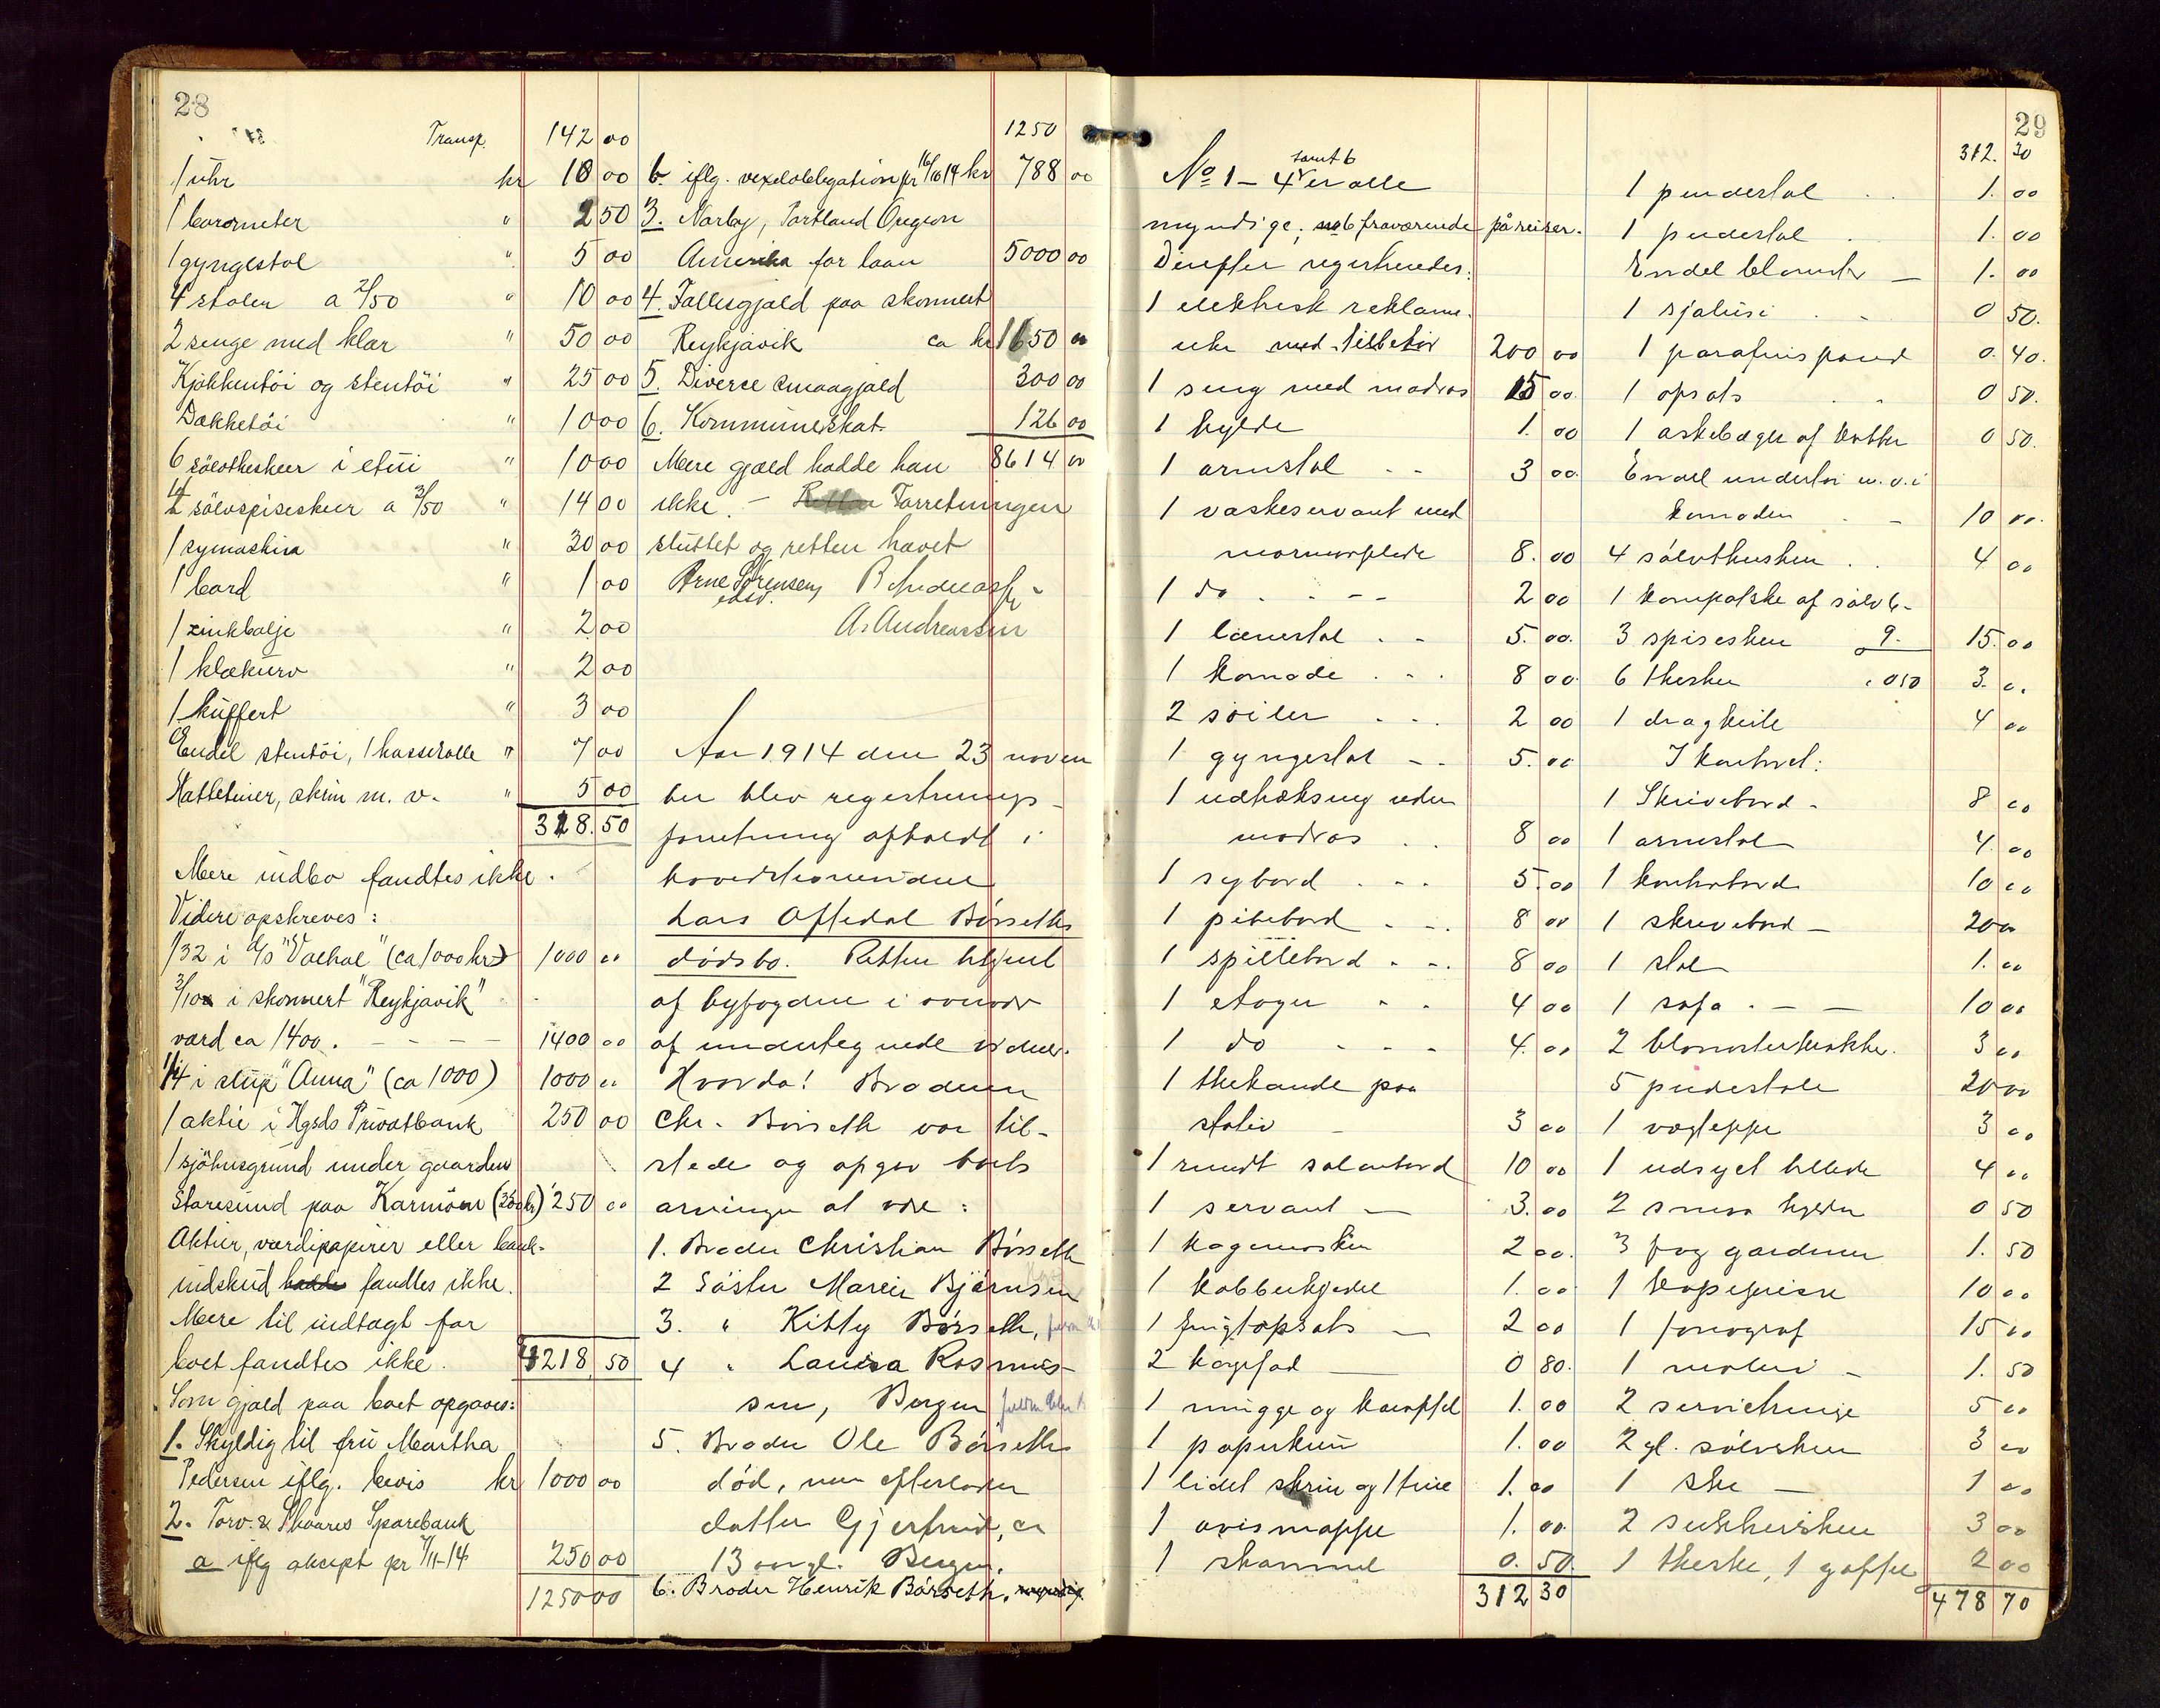 28
Transp. 142 00
1 uhr kr 10 00
1 barometer " 2 50
1 gyngestol " 5 00
4 stoler a 2/50 " 10 00
2 senge med klær " 50 00
Kjökkentöi og stentöi " 25 00
Dækketöi " 10 00
6 sölvtheskeer i etui " 10 00
4 sölvspiseskeer a 3/50 " 14 00
1 symaskin " 30 00
1 bord " 1 00
1 zinkbalje " 2 00
1 klækurv " 2 00
1 kuffert " 3 00
Endel stentöi, 1 kasserolle " 7 00
Hatteliner, skrin m. v. " 5 00
318.50
Mere indbo fandtes ikke.
Videre opskreves:
1/32 i D/S "Valhal" (ca 1000 kr) 1000 00
3/10 i skonnert "Reykjavik"
værd ca 1400. - - - 1400 00
1/4 i slup "Anna" (ca 1000) 1000 00
1 aktie i Hgsds Privatbank 250 00
1 sjöhusgrund under gaarden
Staresund paa Karmöen (250 kr) 250 00
Aktier, værdipapirer eller bank-
indskud hadde fandtes ikke.
Mere til indtægt for
boet fandtes ikke. 4218.50
Som gjæld paa boet opgaves:
1. Skyldig til fru Martha
Pedersen iflg. bevis kr 1000 00
2. Torv. & Skaares Sparebank
a iflg akcept pr 4/11-14 250 00
1250 00
1250
b. iflg. vexelobligation pr 16/10 14 kr 788 00
3. Norby, Portland Oregon
Amerika for laan 5000 00
4. Fællesgjæld paa skonnert
Reykjavik ca kr 1650 00
5. Diverse smaagjæld 300 00
6. Kommuneskat 126 00
Mere gjæld hadde han 8614 00
ikke. - Forretningen
sluttet og retten hævet
Arne Sörensen
edsv.
A. Andreassen
Aar 1914 den 23 novem
ber blev registrerings-
forretning afholdt i
Lars Oftedal Börseths
dödsbo. Retten betjent
af byfogden i overvær
af undertegnede vidner.
Hvorda! Broderen
Chr. Börseth var til-
stede og opgav boets
arvinger at være:
1. Broder Christian Börseth
2 Söster Marie Bjørnsen
3. " Kitty Börseth,
4 " Laura Rasmus-
sen, Bergen
5. Broder Ole Börseth
död, men efterlader
datter Gjertrud, ca
13 aar gl. Bergen.
6. Broder Henrik Börseth. myndig.
29
samt 6
No 1 - 4 er alle
myndige; no 6 fraværende på reiser.
Derefter registreredes:
1 elektrisk reklame-
uhr med tilbehör 200 00
1 seng med madras 15 00
1 hylde 1. 00
1 armstol - - 3 00
1 vaskeservant med
marmorplade 8. 00
1 do - - - 2 00
1 lænestol - - 5. 00
1 komode - - - 8 00
2 söiler - - - 2 00
1 gyngestol - - 5. 00
1 udtræksseng uden
madras - - 8 00
1 sybord - - - 5 00
1 pibebord - - 8 00
1 spillebord - - 8 00
1 etager - - 4 00
1 do - - - 4. 00
1 thekande paa
stativ - 3 00
1 rundt salonbord 10 00
1 servant - 3. 00
1 kagemaskin 2 00
1 kobberkjedel 1. 00
1 frugtopsats - 2 00
2 kagefad 0 80
1 mugge og 1. 00
1 papirkurv 1. 00
1 lidet skrin og 1 tine 1. 00
1 avismappe 1. 00
1 skammel 0. 50
312 30
312. 30
1 pendestol - - 1. 00
1 pudestol - 1. 00
Endel blomster - 1. 00
1 sjalusi - - 0 50.
1 parafinspand 0. 40.
1 opsats - - 0 50.
1 askebæger af kobber 0 50.
Endel undertöi m. v. i
komoden - - 10 00
4 sölvtheskeer - - 4 00
1 kompotske af sölv 6-
3 spiseskeer 9- 15. 00
6 theskeer 0 50 3. 00
1 dragkiste 4 00
I kontoret:
1 Skrivebord - 8 00
1 armstol 4. 00
1 kontorbord 10 00
1 skrivebord - 20 00
1 stol 1. 00
1 sofa - - - 10 00
2 blomsterkrukker. 3 00
5 pudestole 20 00
1 vægteppe 3 00
1 udsyet billede 4 00
2 smaa hylder 0 50
3 fag gardiner 1. 50
1 kopipresse 10 00
1 fonograf 15 00
1 maleri - 1. 50
2 servietringe 5 00
2 gl. sölvskeer 3 00
1 ske - 1 00
2 sukkerskeer 3 00
1 theske, 1 gaffel 2 00
478 70